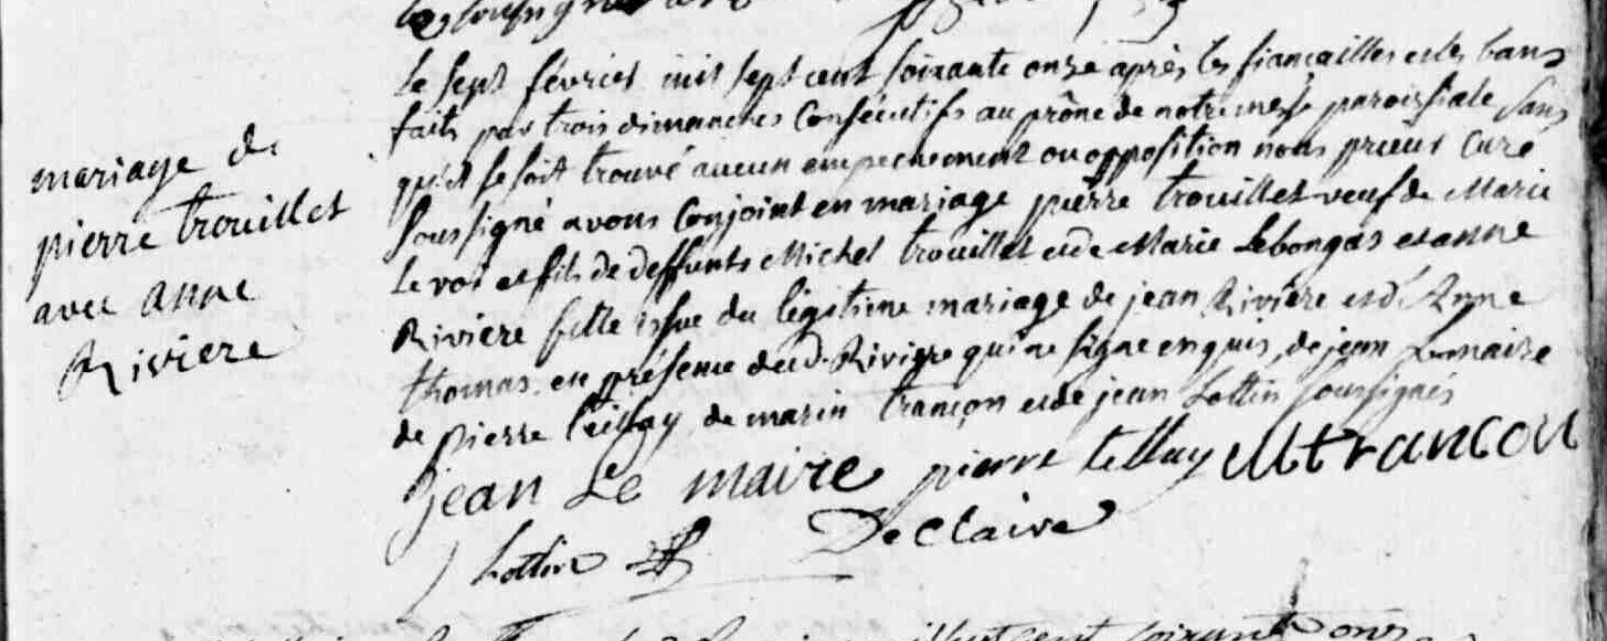 mariage de
pierre trouillet
avec anne
Riviere
Le sept février mil sept cent soixante onze après les fiançailles et les bans
faits par trois dimanches Consécutifs au prône de notre messe paroissiale sans
qu'il se soit trouvé aucun empechement ou opposition nous prieur Curé
soussigné avons Conjoint en mariage pierre trouillet veuf de Marie
Le roi et fils de deffunts Michel trouillet et de Marie Lebongas et anne
Riviere fille issue du légitime mariage de jean Riviere et d'Anne
thomas en présence dud. Riviere qui ne signe enquis, de jean Lemaire
de pierre de marin trançon et de jean Lottin soussignés
jean Le maire pierre M trancon
J Lottin DeClaire